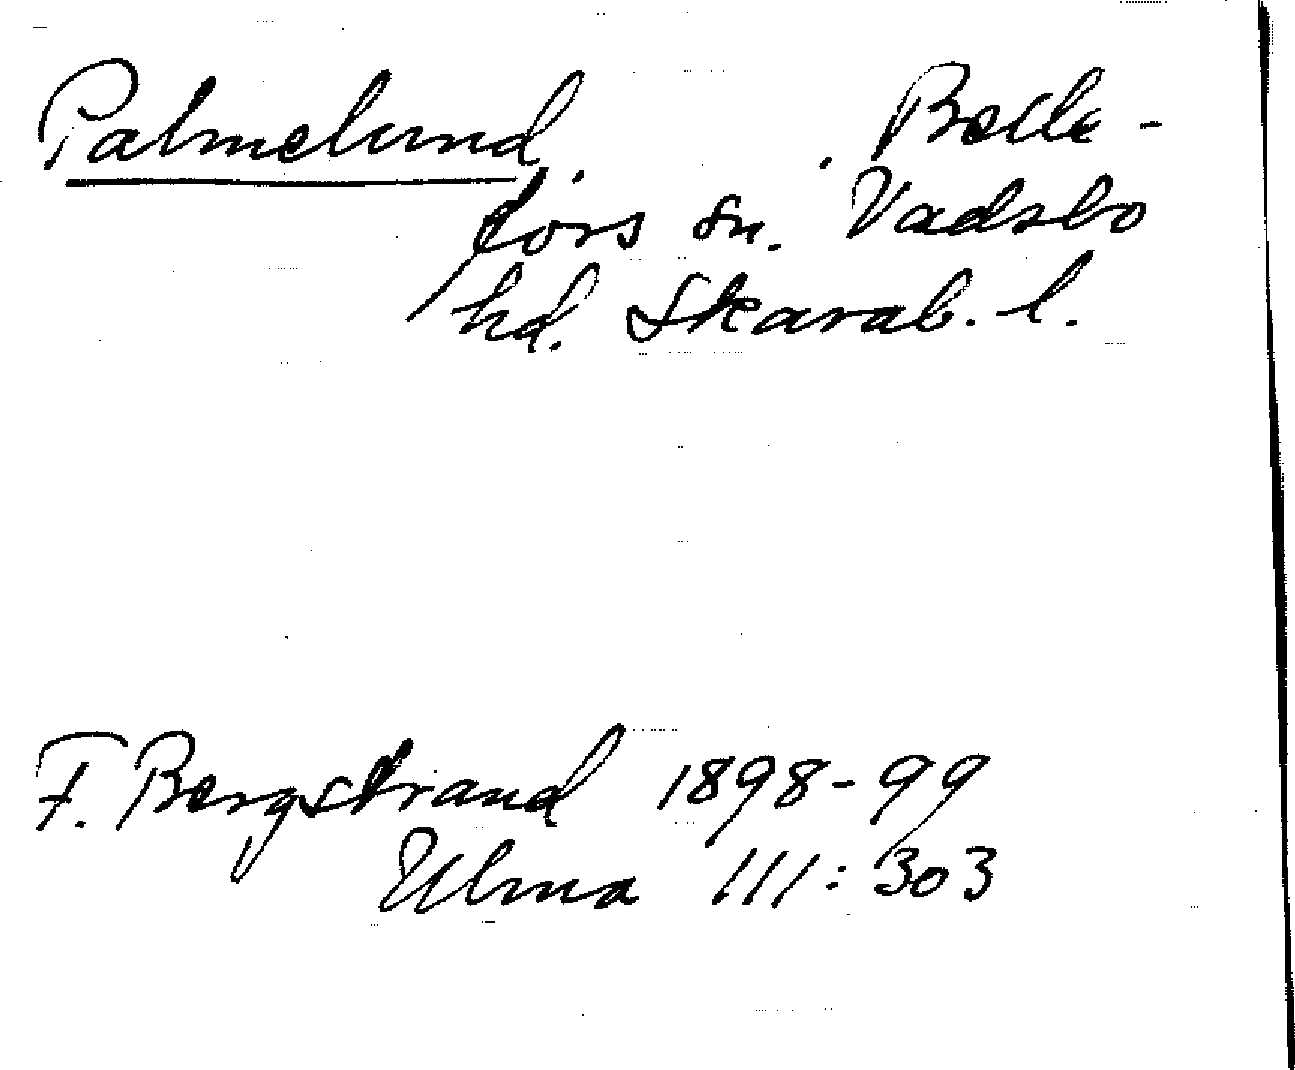 Palmelund. Belle-
fors sn. Vadsbo
hd. Skarab. l.
F. Bergstrand 1898-99
Ulma 111:303